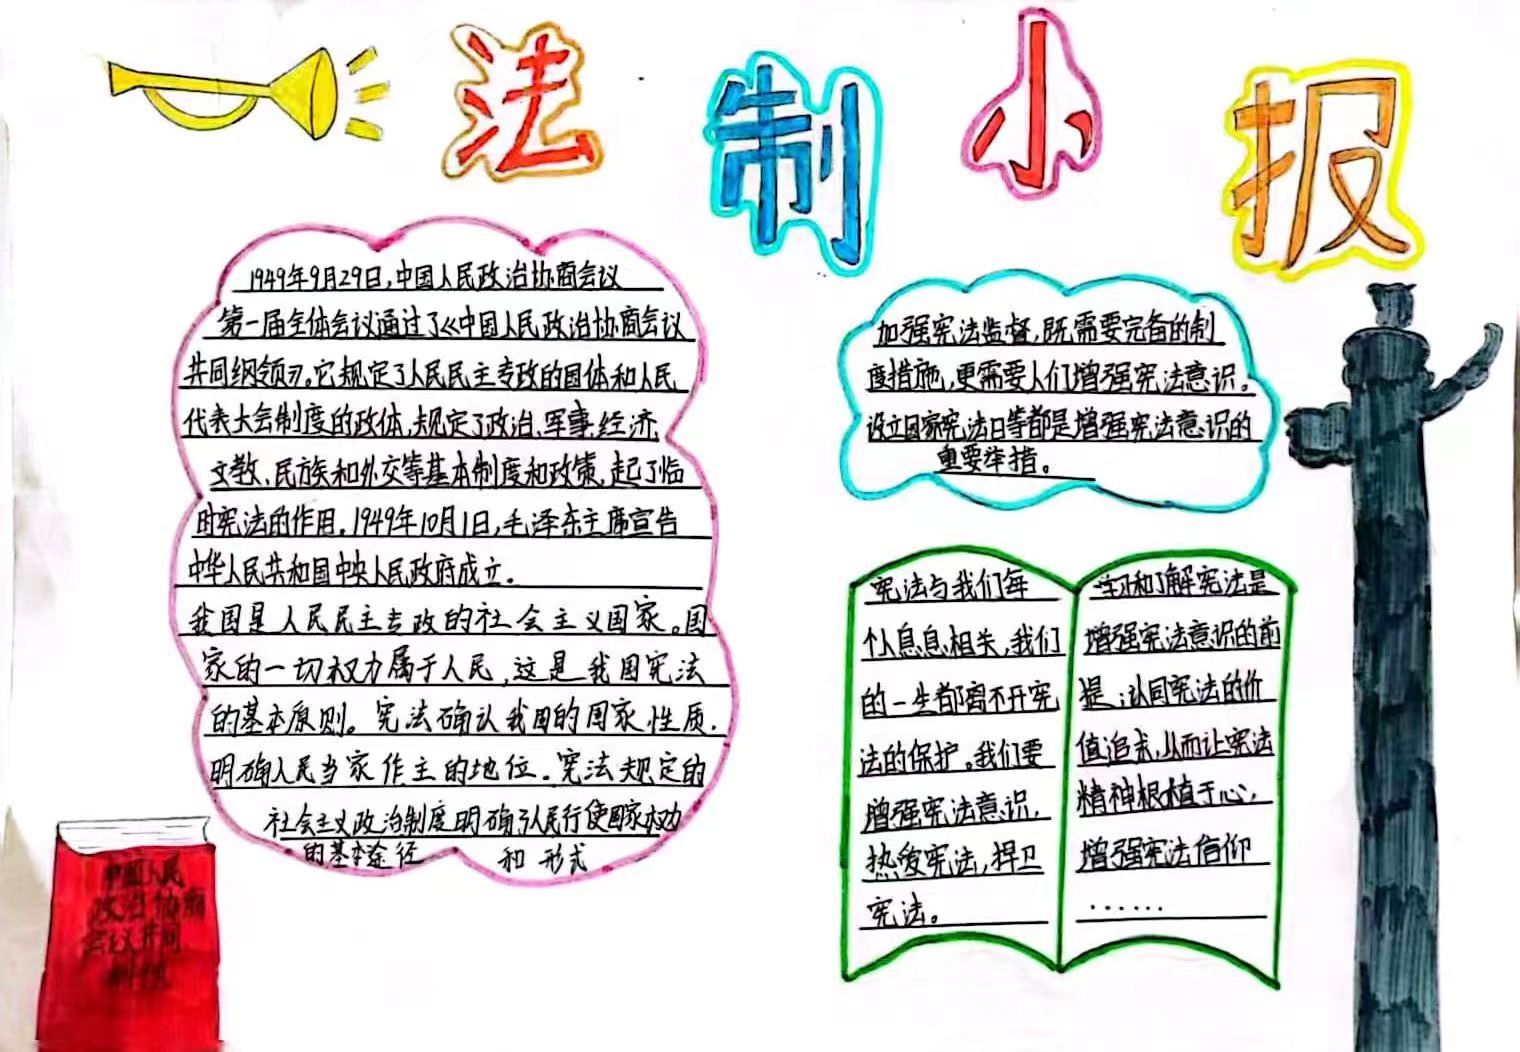 法制小报
1949年9月29日,中国人民政治协商会议
第一届全体会议通过了《中国人民政治协商会议
共同纲领》。它规定了人民民主专政的国体和人民
代表大会制度的政体,规定了政治、军事、经济
文教、民族和外交等基本制度和政策,起了临
时宪法的作用。1949年10月1日,毛泽东主席宣告
中华人民共和国中央人民政府成立。
我国是人民民主专政的社会主义国家。国
家的一切权力属于人民,这是我国宪法
的基本原则。宪法确认我国的国家性质.
明确人民当家作主的地位.宪法规定的
社会主义政治制度明确了人民行使国家权力
的基本途径 和形式
加强宪法监督,既需要完备的制
度措施,更需要人们增强宪法意识。
设立国家宪法日等都是增强宪法意识的
重要举措。
宪法与我们每
个人息息相关,我们
的一生都离不开宪
法的保护。我们要
增强宪法意识,
热爱宪法,捍卫
宪法。
学习和了解宪法是
增强宪法意识的前
提;认同宪法的价
值追求,从而让宪法
精神根植于心,
增强宪法信仰
......
中国人民
政治协商
会议共同
纲领